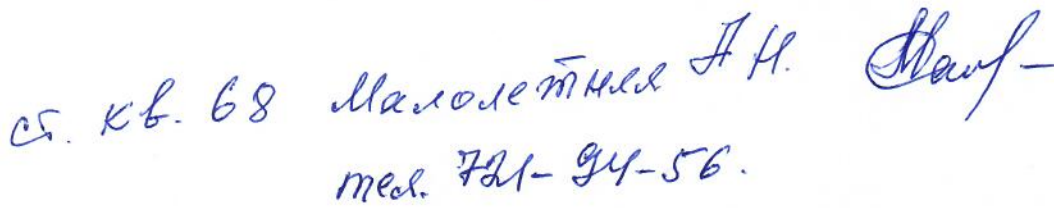 ст. кв. 68 Малолетняя А Н.
тел. 721-94-56.